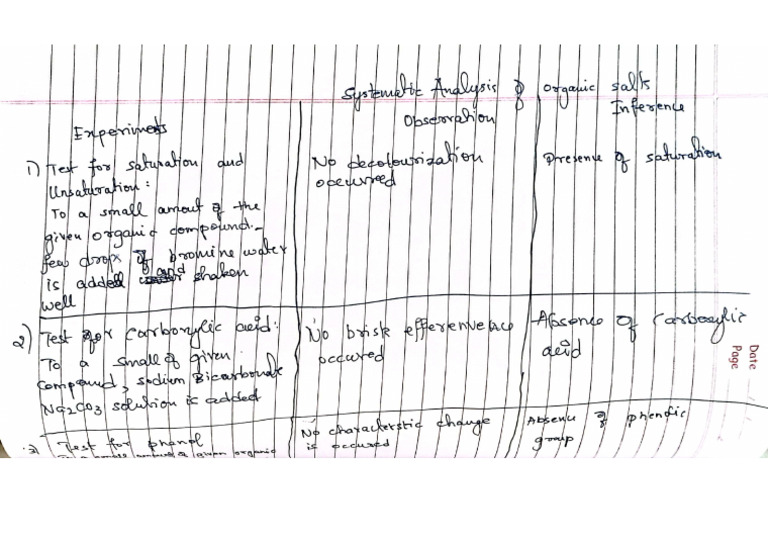 Systematic Analysis of organic salts
Experiments
Observation
Inference
1) Test for saturation and
Unsaturation:
To a small amout of the
given organic compound.
few drops of bromine water
is added and shaken
well
No decolourization
occurred
Presence of saturation
2) Test for Carboxylic acid:
To a small of given
compound, sodium Bicarbonate
Na2CO3 solution is added
No brisk effervence
occured
Absence of Carboxylic
acid
3) Test for phenol
given organic
No characterstic change
is occured
Absence of phenolic
group
Date
Page